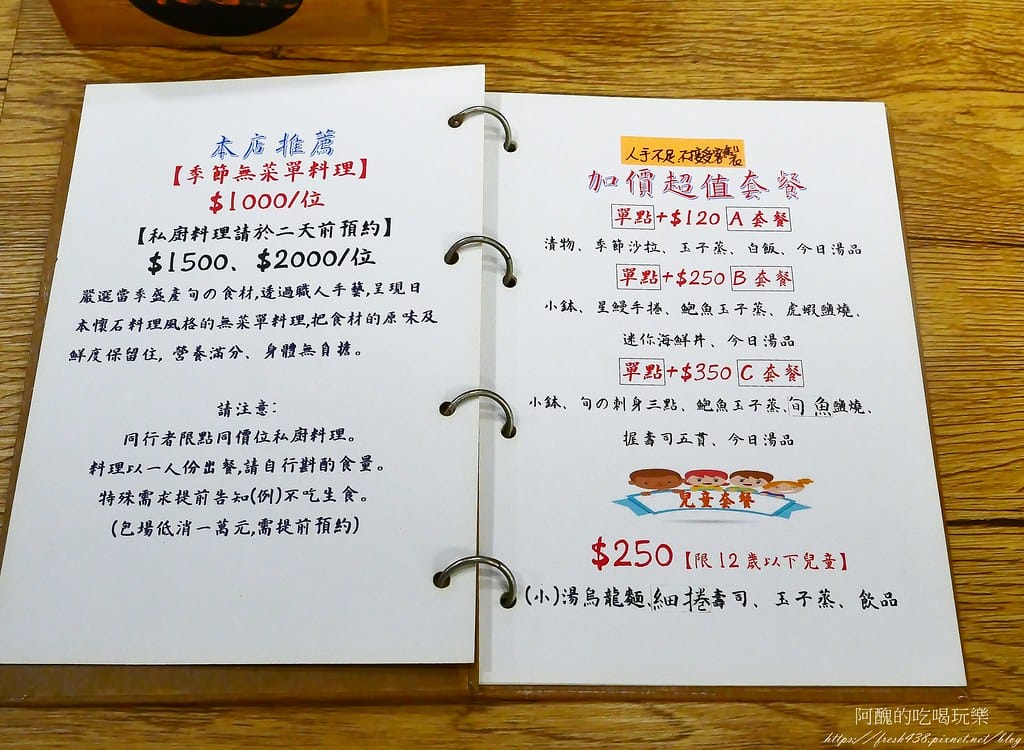 本店推薦
【季節無菜單料理】
$1000/位
【私廚料理請於二天前預約】
$1500、$2000/位
嚴選當季盛產旬の食材,透過職人手藝,呈現日
本懷石料理風格的無菜單料理,把食材的原味及
鮮度保留住, 營養滿分、身體無負擔。
請注意:
同行者限點同價位私廚料理。
料理以一人份出餐,請自行斟酌食量。
特殊需求提前告知(例)不吃生食。
(包場低消一萬元,需提前預約)
人手不足 不接受客製
加價超值套餐
單點+$120 A 套餐
漬物、季節沙拉、玉子蒸、白飯、今日湯品
單點+$250 B 套餐
小缽、星鰻手捲、鮑魚玉子蒸、虎蝦鹽燒、
迷你海鮮丼、今日湯品
單點+$350 C 套餐
小缽、旬の刺身三點、鮑魚玉子蒸、旬魚鹽燒、
握壽司五貫、今日湯品
兒童套餐
$250【限 12 歲以下兒童】
(小)湯烏龍麵、細捲壽司、玉子蒸、飲品
阿醜的吃喝玩樂
https://fresh438.pixnet.net/blog